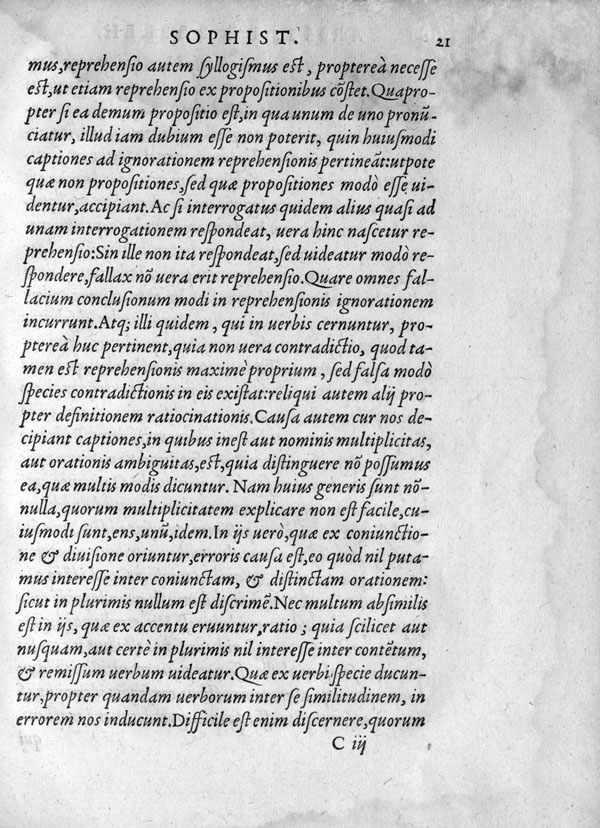 SOPHIST. 21
mus,reprehensio autem syllogismus est, proptereà necesse
est,ut etiam reprehensio ex propositionibus cōstet.Quapro-
pter si ea demum propositio est,in qua unum de uno pronū-
ciatur, illud iam dubium esse non poterit, quin huiusmodi
captiones ad ignorationem reprehensionis pertineāt:utpote
quæ non propositiones,sed quæ propositiones modò esse ui-
dentur,accipiant.Ac si interrogatus quidem alius quasi ad
unam interrogationem respondeat, uera hinc nascetur re-
prehensio:Sin ille non ita respondeat,sed uideatur modò re-
spondere,fallax nō uera erit reprehensio.Quare omnes fal-
lacium conclusionum modi in reprehensionis ignorationem
incurrunt.Atq; illi quidem, qui in uerbis cernuntur, pro-
ptereà huc pertinent,quia non uera contradictio, quod ta-
men est reprehensionis maximè proprium, sed falsa modò
species contradictionis in eis existat:reliqui autem alij pro-
pter definitionem ratiocinationis.Causa autem cur nos de-
cipiant captiones,in quibus inest aut nominis multiplicitas,
aut orationis ambiguitas,est,quia distinguere nō possumus
ea,quæ multis modis dicuntur. Nam huius generis sunt nō-
nulla,quorum multiplicitatem explicare non est facile,cu-
iusmodi sunt,ens,unū,idem.In ijs uerò,quæ ex coniunctio-
ne & diuisione oriuntur,erroris causa est,eo quòd nil puta-
mus interesse inter coniunctam, & distinctam orationem:
sicut in plurimis nullum est discrimē.Nec multum absimilis
est in ijs, quæ ex accentu eruuntur,ratio; quia scilicet aut
nusquam,aut certè in plurimis nil interesse inter contētum,
& remissum uerbum uideatur.Quæ ex uerbi specie ducun-
tur,propter quandam uerborum inter se similitudinem, in
errorem nos inducunt.Difficile est enim discernere,quorum
C iij